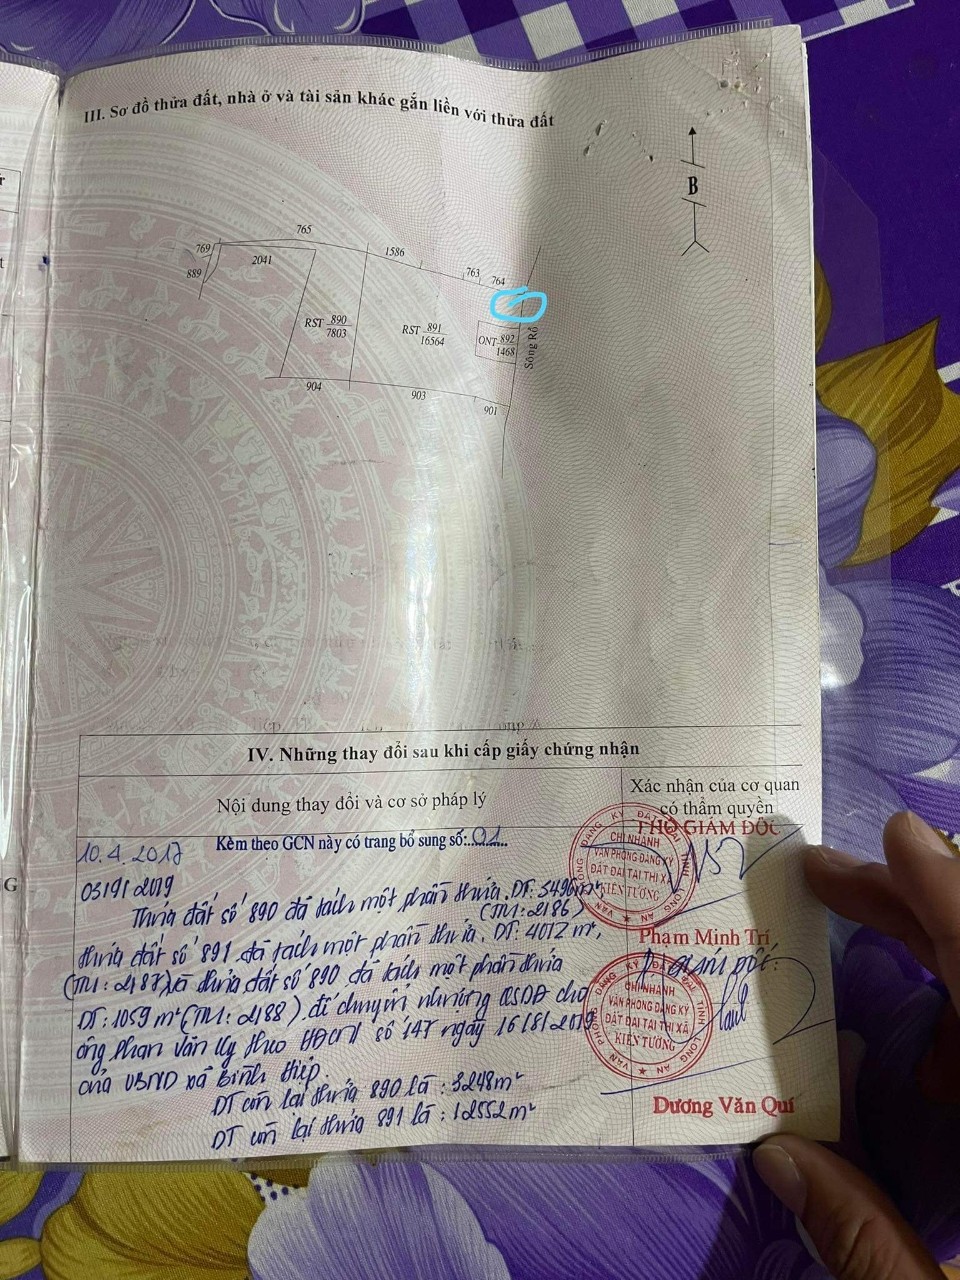 III. Sơ đồ thửa đất, nhà ở và tài sản khác gắn liền với thửa đất
B
765
769
2041
889
1586
763
764
RST 890
7803
RST 891
16564
ONT 892
1468
Sông Rồ
904
903
901
IV. Những thay đổi sau khi cấp giấy chứng nhận
Nội dung thay đổi và cơ sở pháp lý
Xác nhận của cơ quan
có thẩm quyền
10.4.2017
Kèm theo GCN này có trang bổ sung số:..01...
PHÓ GIÁM ĐỐC
CHI NHÁNH
VĂN PHÒNG ĐĂNG KÝ
ĐẤT ĐAI TẠI THỊ XÃ
KIẾN TƯỜNG
Phạm Minh Trí
03/9/2019
Thửa đất số 890 đã tách một phần thửa. DT: 3496m²
(TM: 2186)
thửa đất số 891 đã tách một phần thửa. DT: 4012m²,
(TM: 2187) và thửa đất số 890 đã tách một phần thửa
DT: 1059m² (TM: 2188). để chuyển nhượng QSDĐ cho
ông Phan Văn Uy theo HĐCN số 147 ngày 16/8/2019
của UBND xã Bình Hiệp.
DT còn lại thửa 890 là: 3248m²
DT còn lại thửa 891 là: 12552m²
GIÁM ĐỐC
VĂN PHÒNG ĐĂNG KÝ ĐẤT ĐAI TỈNH LONG AN
CHI NHÁNH
VĂN PHÒNG ĐĂNG KÝ
ĐẤT ĐAI TẠI THỊ XÃ
KIẾN TƯỜNG
Dương Văn Quí
G